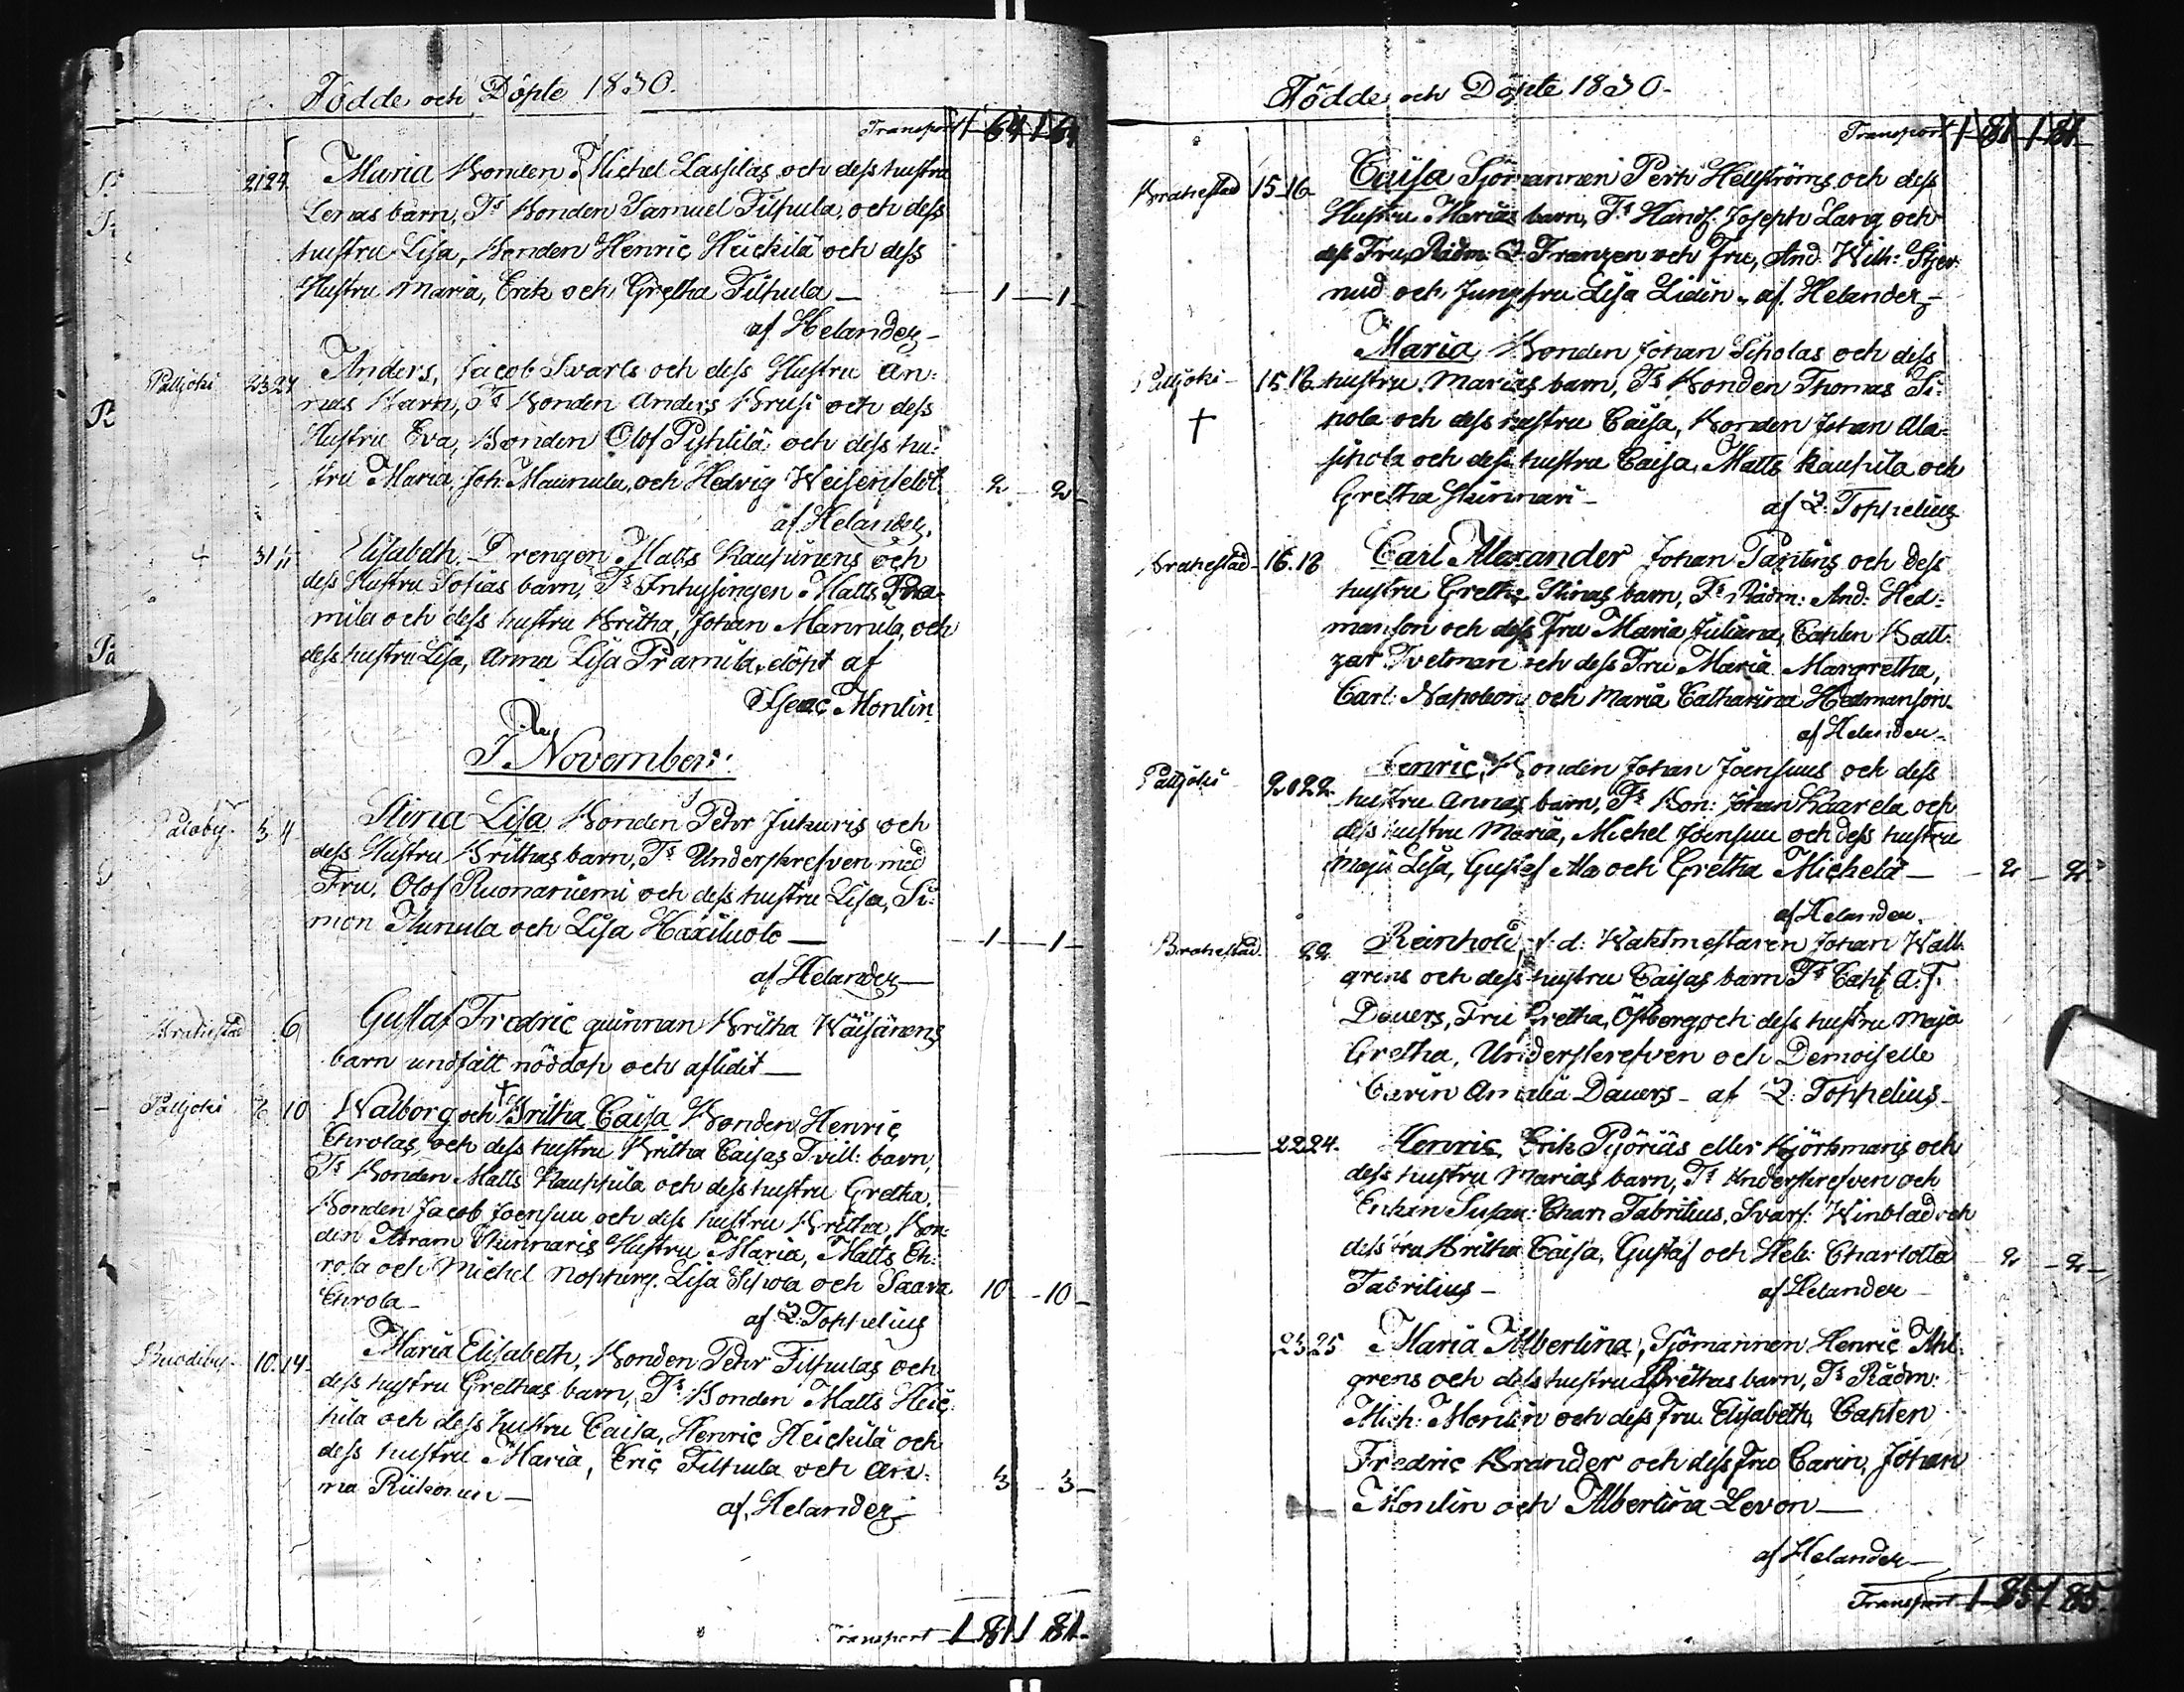 Födde och Döpte 1830.
Transport 1 64 1 64
21 24. Maria Bonden Michel Lassilas och dess hustru
Lenas barn, Ts Bonden Samuel Tilhula, och dess
hustru Lisa, Bonden Henric Heickilä och dess
Hustru Maria, Erik och Gretha Tilhula — 1 — 1 —
af Helander —
Pattjoki 23 24 Anders, Jacob Svarts och dess Hustru An-
nas Barn, Ts Bonden Anders Krusi och dess
Hustru Eva, Bonden Olof Pyhtilä och dess hu-
stru Maria, Joh: Maunula, och Hedvig 2 — 2 —
af Helander.
+ 31 Elisabeth. Drengen Matts Kauhunens och
dess Hustru Sofias barn, Ts Inhysingen Matts Pra-
mila och dess hustru Britha, Johan Mannila, och
dess hustru Lisa, Anna Lisa Pramila, döpt af
Isaac Monlin
I November:
Paloby. 3 4 Stina Lisa Bonden Pehr Jukuris och
dess Hustru Brithas barn, Ts Underskrefven med
Fru, Olof Ruonaniemi och dess hustru Lisa, Si-
mon och Lisa Haxiluoto — 1 — 1 —
af Helander —
Brahestad 6 Gustaf Fredric quinnan Britha Wäisänens
barn undfått nöddop och aflidit —
Pattjoki 10 Walborg och † Britha Caisa Bonden Henric
Ehrolas, och dess hustru Britha Caisas Tvill: barn,
Ts Bonden Matts Kauppila och dess hustru Gretha,
Bonden Jacob Joensuu och dess hustru Britha, Bon-
den Abram Kinnaris Hustru Maria, Matts Eh-
rola och Michel Lisa Sihvola och Saara 10 — 10 —
Ehrola —
af Z: Toppelius
10. 14. Maria Elisabeth, Bonden Pehr Tilhulas och
dess hustru Grethas barn, Ts Bonden Matts Heic-
kila och dess hustru Caisa, Henric Heickilä och
dess hustru Maria, Eric Tilhula och An-
na 3 — 3 —
af, Helander —
Transport 1 81 1 81.
Födde och Döpte 1830.
Transport 1 81 1 81
Brahestad 15 16 Caisa Sjömannen Pehr Hellströms och dess
Hustru Marias barn, Ts Handl: Joseph Lang och
dess Fru, Rådm: Z Franzen och Fru, And: Wilh: Stjer-
nud och Jungfru Lisa Lidin — af. Helander —
Maria, Bonden Johan Siholas och dess
Pattjoki — 15. 18 hustru Marias barn, Ts Bonden Thomas Si-
† hola och dess hustru Caisa, Bonden Johan Ala-
sihola och dess hustru Caisa, Matts Kauhila och
Gretha Kinnari — af Z: Toppelius
Brahestad — 16. 18 Carl Alexander Johan och dess
hustru Gretha Stinas barn, Ts Rådm: And: Hed-
manson och dess Fru Maria Juliana, Capten Balt-
zar Tvetman och dess Fru Maria Margretha,
Carl Napoleon och Maria Catharina Hedmanson —
af Helander —
Pattjoki 20 22 Henric, Bonden Johan Joensuus och dess
hustru Annas barn, Ts Bon: Johan Kaarela och
dess hustru Maria, Michel Joensuu och dess hustru
Maja Lisa, Gustaf Ala och Gretha Michelä — 2 — 2
af Helander.
Brahestad. 22 Reinhold, f: d: Waktmestaren Johan Wall-
grens och dess hustru Caisas barn Ts Capt A. F.
Dauers, Fru Gretha, Östberg och dess hustru Maja
Gretha, Underskrefven och Demoiselle
Carin Amalia Dauers — af Z: Toppelius —
22 24. Henric Erik Pyöriäs eller Björkmans och
dess hustru Marias barn, Ts Underskrefven och
Enkan Susan: Char: Fabritius, Svarf: Winblad och
dess fru Britha Caisa, Gustaf och Hel: Charlotta 2 — 2 —
Fabritius — af Helander —
23 25 Maria Albertina, Sjömannen Henric Ahl-
grens och dess hustru Brithas barn, Ts Rådm:
Mich: Monlin och dess Fru Elisabeth, Capten
Fredric Brander och dess Fru Carin, Johan
Monlin och Albertina Levon —
af Helander —
Transport 1 85 1 85